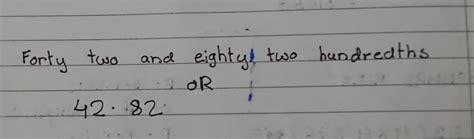 Forty two and eighty two hundredths
OR
42.82